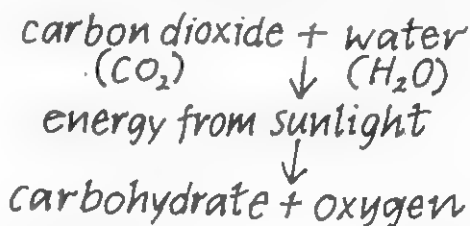 carbon dioxide + water
(CO₂) ↓ (H₂O)
energy from sunlight
↓
carbohydrate + oxygen